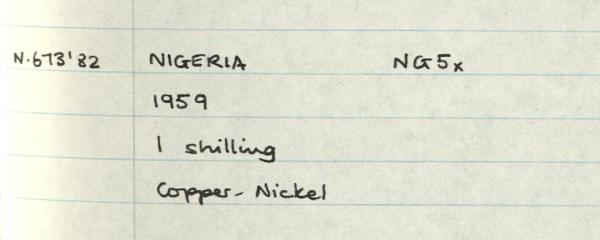 N.673'82 NIGERIA NG5x
1959
1 shilling
Copper-Nickel